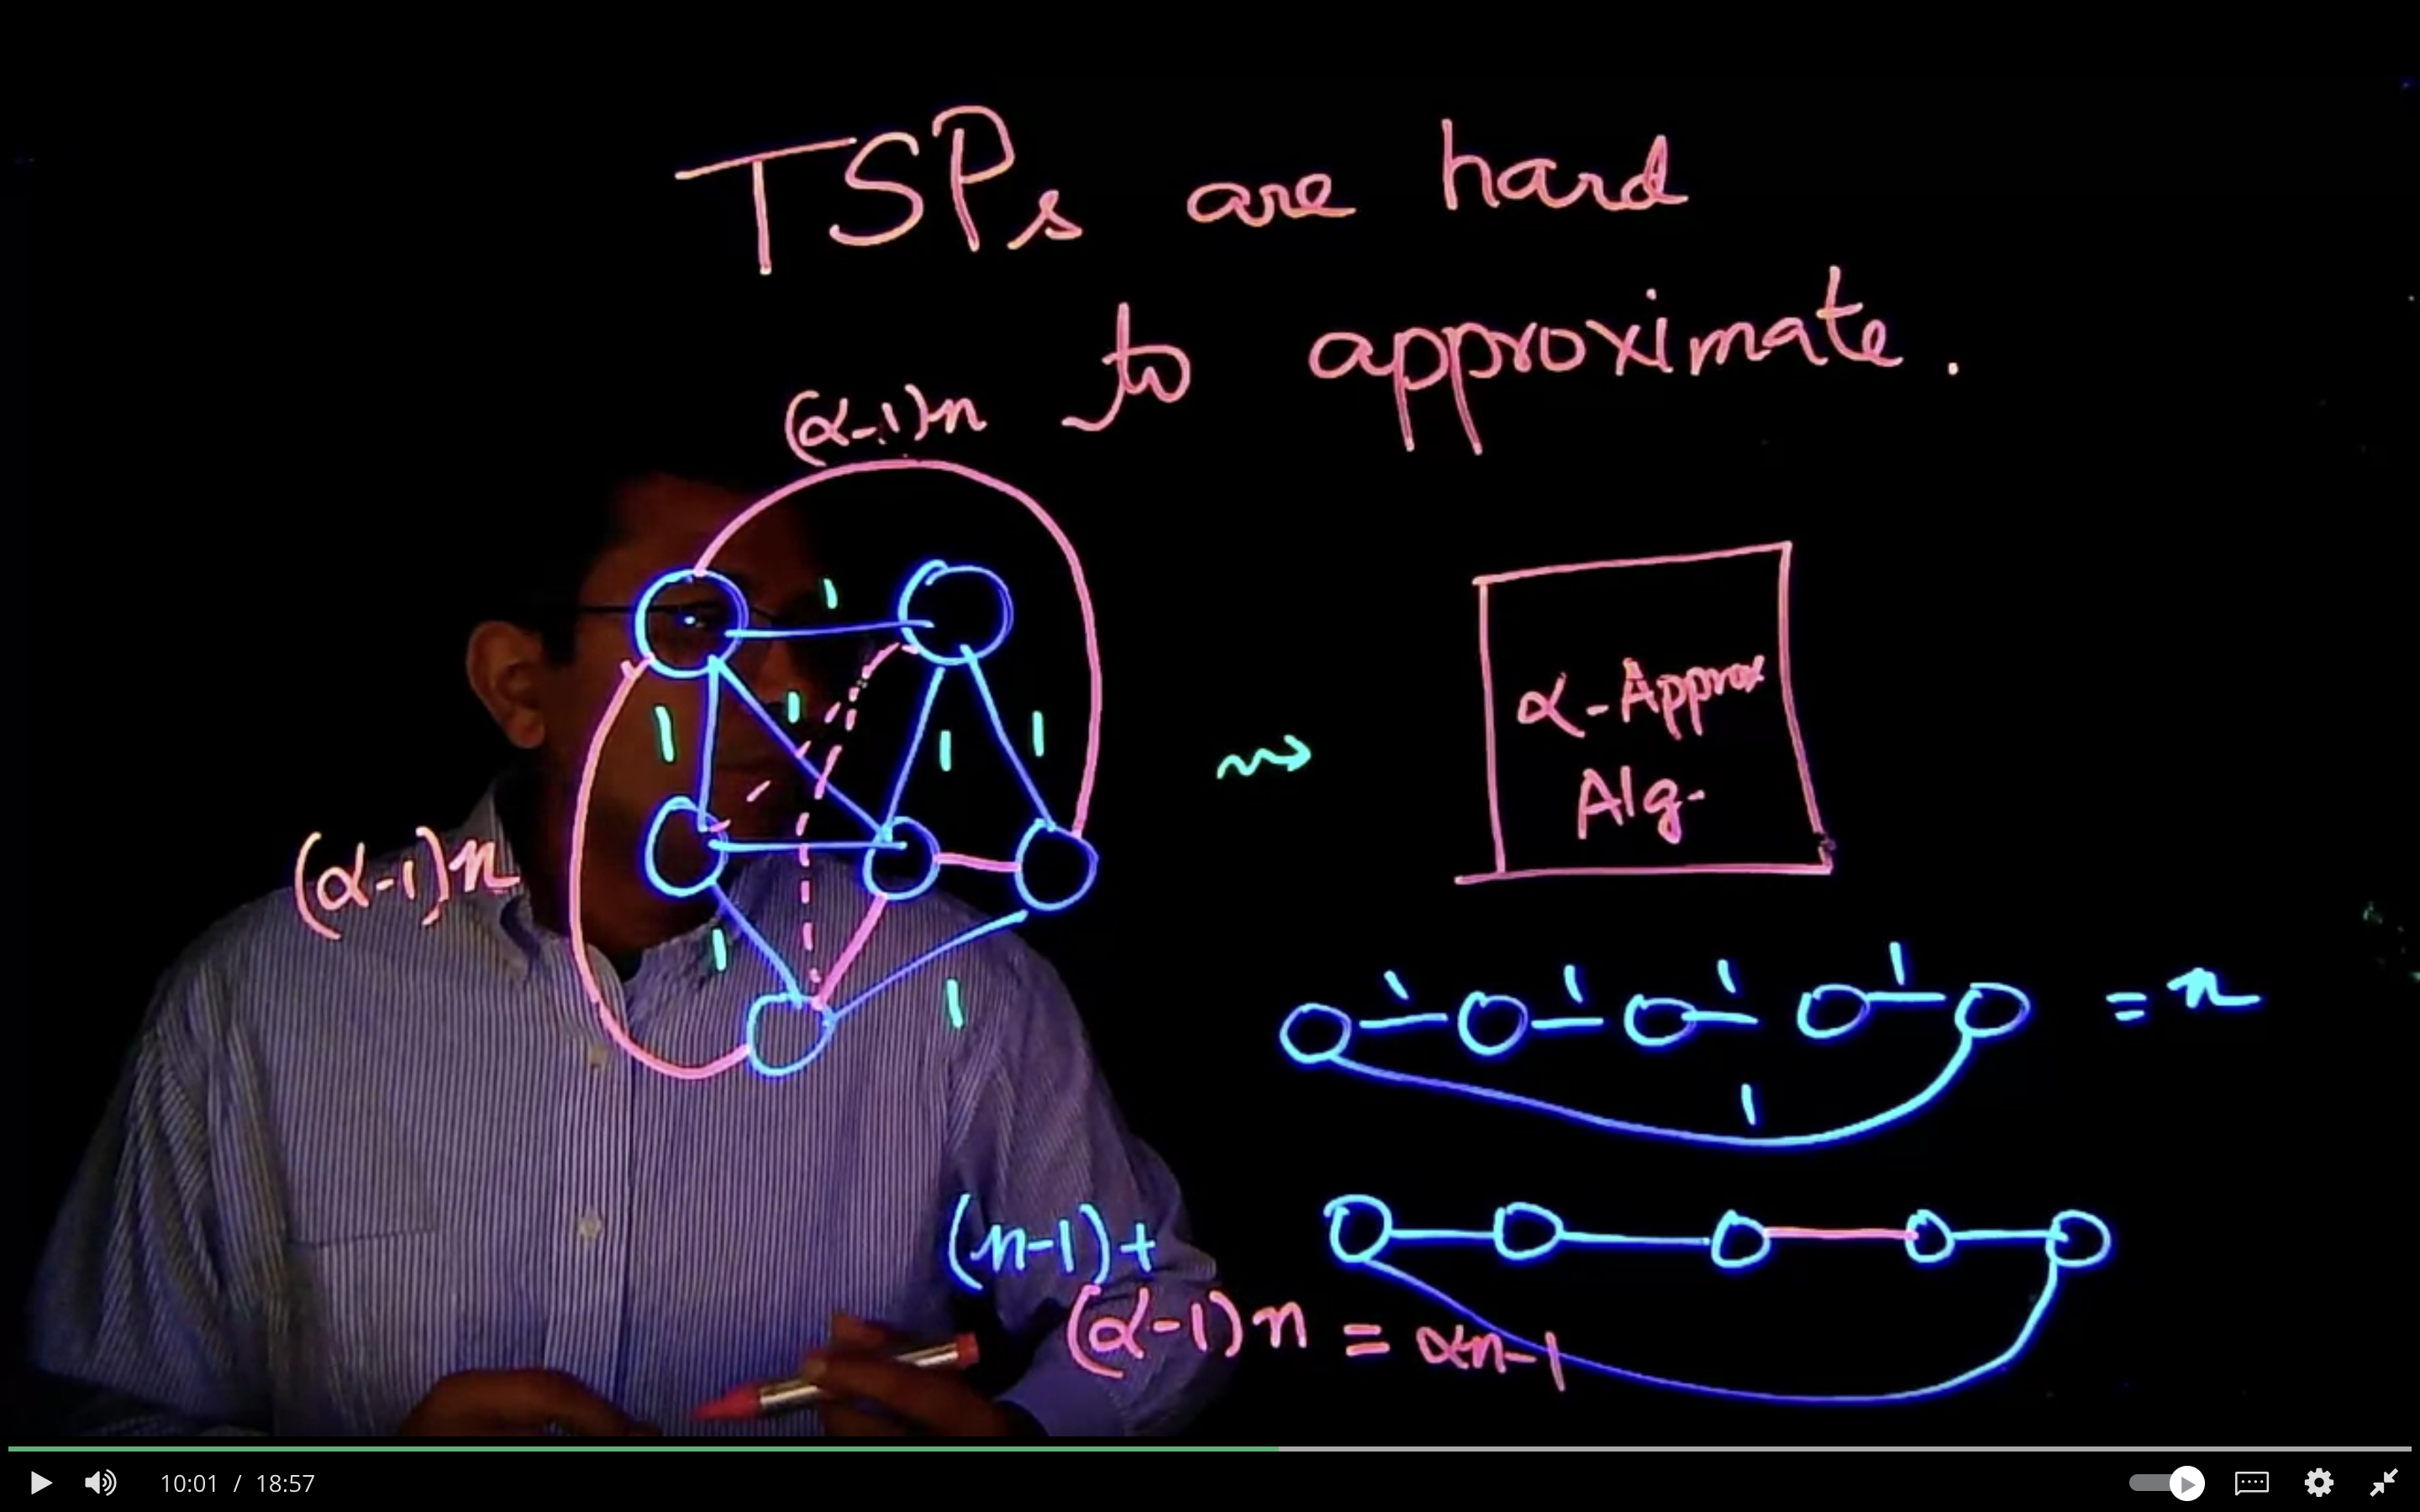 TSPs are hard
to approximate.
(α-1)n
1
1
1
1
1
(α-1)n
1
1
α-Approx
Alg.
1 1 1 1 = n
1
(n-1)+
(α-1)n = αn-1
10:01 / 18:57